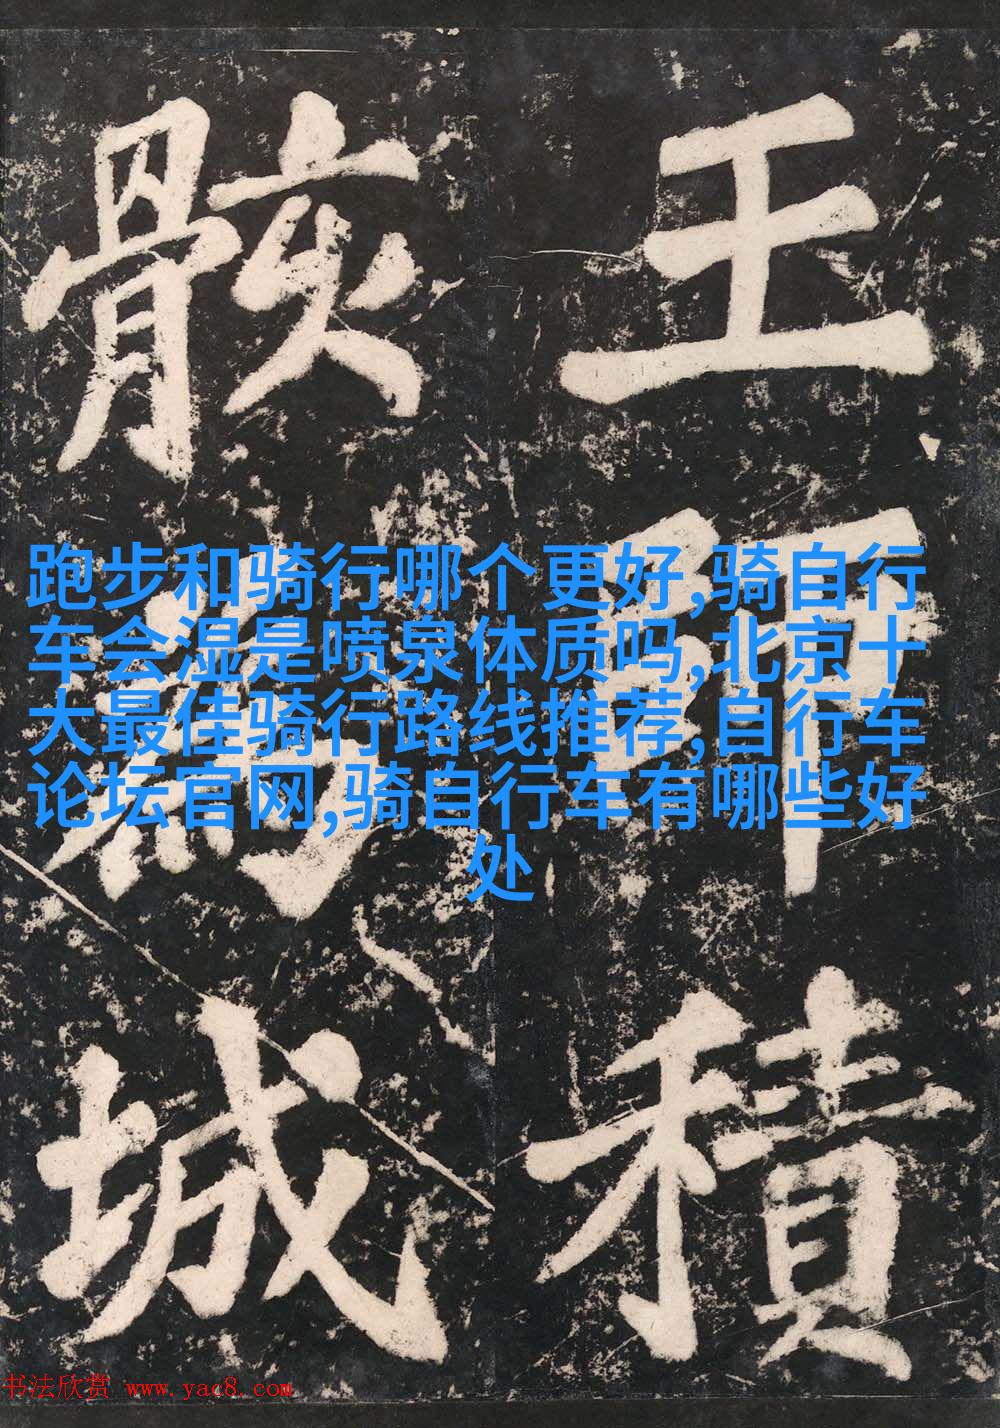 王師積
骸為城
跑步和骑行哪个更好,骑自行
车会湿是喷泉体质吗,北京十
大最佳骑行路线推荐,自行车
论坛官网,骑自行车有哪些好
处
书法欣赏 www.yac8.com